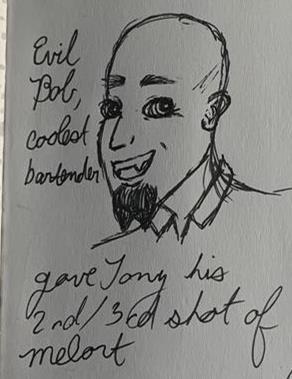 Evil
Bob,
coolest
bartender
gave Tony his
2nd/3rd shot of
melort